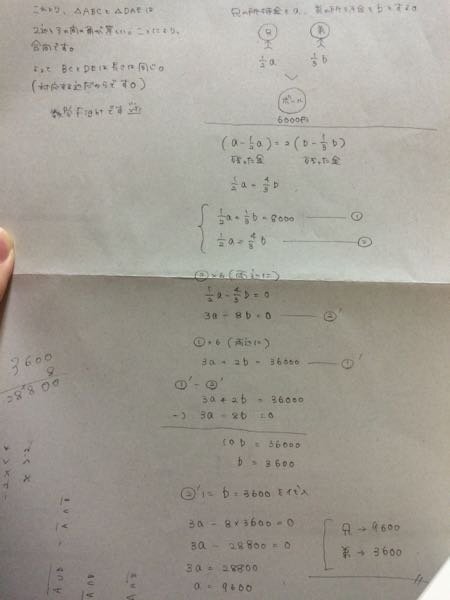 これより、△ABCと△DAEは
2辺とその間の角が等しいことにより、
合同です。
よって BCとDEは長さは同じ。
(対応する辺だからです。)
数学 fightです
兄の所持金をa、弟の所持金をbとする。
兄 弟
1/2a 1/3b
ボール
6000円
(a-1/2a)=2(b-1/3b)
残った金 残った金
1/2a=4/3b
1/2a+1/3b=6000 ―①
1/2a=4/3b ―②
②×6(両辺に)
1/2a-4/3b=0
3a-8b=0 ―②'
①×6(両辺に)
3a+2b=36000 ―①'
①'-②'
3a+2b=36000
-) 3a-8b=0
10b=36000
b=3600
②'に b=3600を代入
3a-8×3600=0
3a-28800=0
3a=28800
a=9600
兄→9600
弟→3600
3600
8
28800
-2x<4
x>-2
A∪B = A∩B
A∩B
A∩B